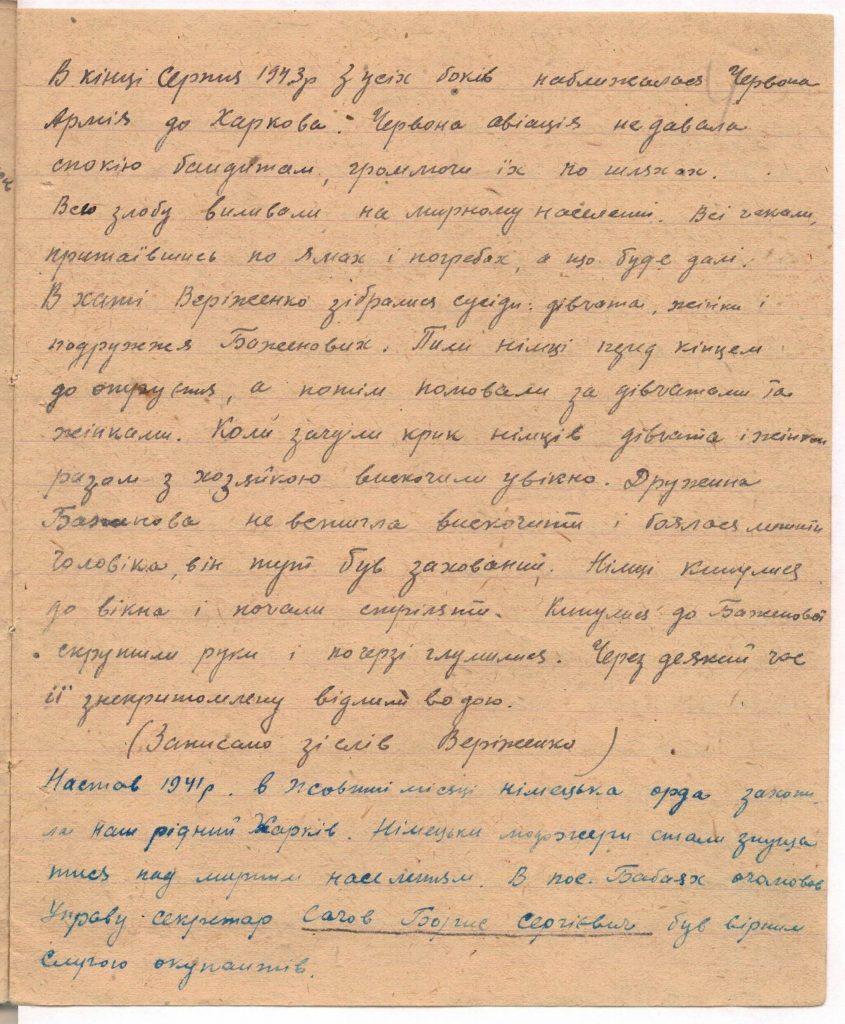 В кінці Серпня 1943р з усіх боків наближалася Червона
Армія до Харкова. Червона авіація не давала
спокію бандитам, громлючи їх по шляхах.
Всю злобу виливали на мирному населенні. Всі чекали,
притаївшись по ямах і погребах, а що буде далі.
В хаті Веріженко зібралися сусіди: дівчата, жінки і
подружжя Баженових. Пили німці перед кінцем
до а потім полювали за дівчатами та
жінками. Коли зачули крик німців дівчата і жінки
разом з хозяйкою вискочили у вікно. Дружина
Баженова не встигла вискочити і боялася лишити
чоловіка, він тут був захований. Німці кинулися
до вікна і почали стріляти. Кинулися до Баженової
скрутили руки і по черзі глумилися. Через деякий час
її знекритомлену відлили водою.
(Записано зі слів Веріженко)
Настав 1941р. в жовтні місяці німецька орда захопи-
ла наш рідний Харків. Німецьки людожери стали знуща
тися над мирним населенням. В пос. Бабаях очоловав
Управу секретар Сачов Борис Сергієвич був вірним
слугою окупантів.